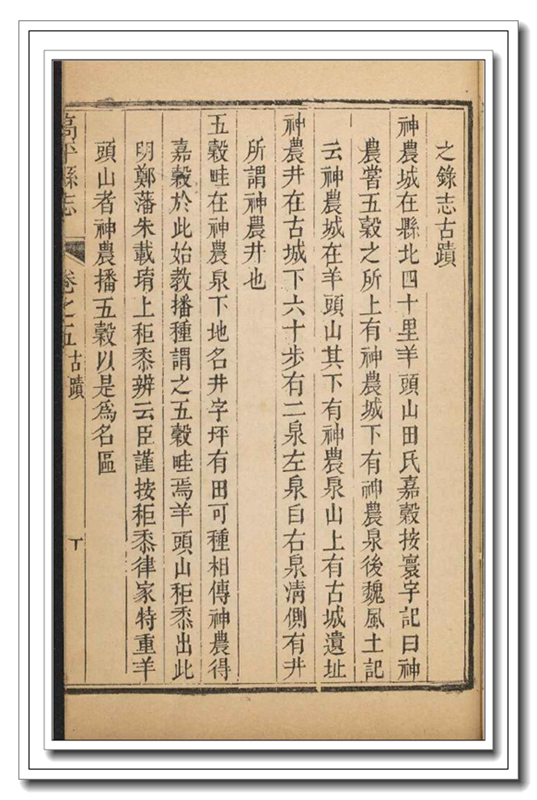 之錄志古蹟
神農城在縣北四十里羊頭山田氏嘉穀按寰宇記曰神
農嘗五穀之所上有神農城下有神農泉後魏風土記
云神農城在羊頭山其下有神農泉山上有古城遺址
神農井在古城下六十步有二泉左泉白右泉清側有井
所謂神農井也
五穀畦在神農泉下地名井字坪有田可種相傳神農得
嘉穀於此始教播種謂之五穀畦焉羊頭山秬黍出此
明鄭藩朱載堉上秬黍辨云臣謹按秬黍律家特重羊
頭山者神農播五穀以是為名區
高平縣志 卷之五 古蹟